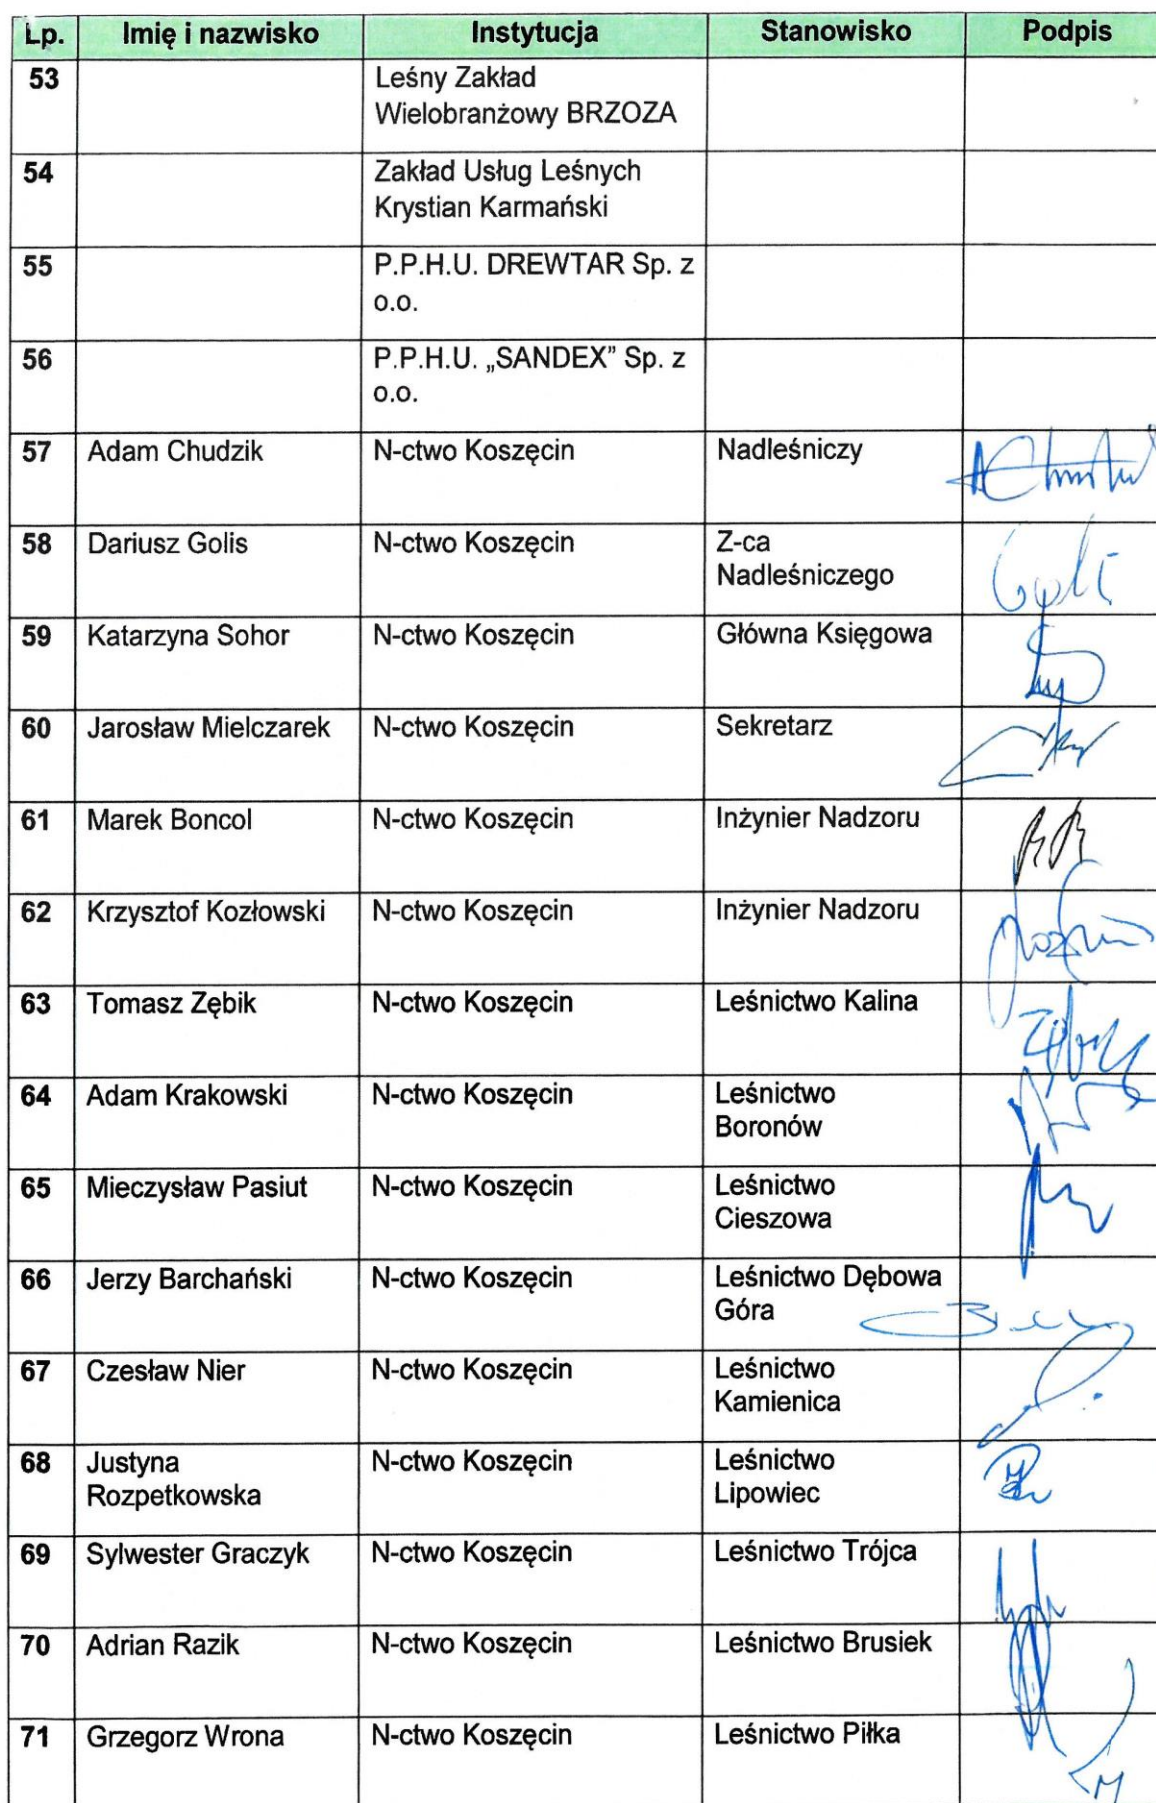 Lp. Imię i nazwisko Instytucja Stanowisko Podpis
53 Leśny Zakład
Wielobranżowy BRZOZA
54 Zakład Usług Leśnych
Krystian Karmański
55 P.P.H.U. DREWTAR Sp. z
o.o.
56 P.P.H.U. „SANDEX” Sp. z
o.o.
57 Adam Chudzik N-ctwo Koszęcin Nadleśniczy
58 Dariusz Golis N-ctwo Koszęcin Z-ca
Nadleśniczego
59 Katarzyna Sohor N-ctwo Koszęcin Główna Księgowa
60 Jarosław Mielczarek N-ctwo Koszęcin Sekretarz
61 Marek Boncol N-ctwo Koszęcin Inżynier Nadzoru
62 Krzysztof Kozłowski N-ctwo Koszęcin Inżynier Nadzoru
63 Tomasz Zębik N-ctwo Koszęcin Leśnictwo Kalina
64 Adam Krakowski N-ctwo Koszęcin Leśnictwo
Boronów
65 Mieczysław Pasiut N-ctwo Koszęcin Leśnictwo
Cieszowa
66 Jerzy Barchański N-ctwo Koszęcin Leśnictwo Dębowa
Góra
67 Czesław Nier N-ctwo Koszęcin Leśnictwo
Kamienica
68 Justyna N-ctwo Koszęcin Leśnictwo
Rozpetkowska Lipowiec
69 Sylwester Graczyk N-ctwo Koszęcin Leśnictwo Trójca
70 Adrian Razik N-ctwo Koszęcin Leśnictwo Brusiek
71 Grzegorz Wrona N-ctwo Koszęcin Leśnictwo Piłka